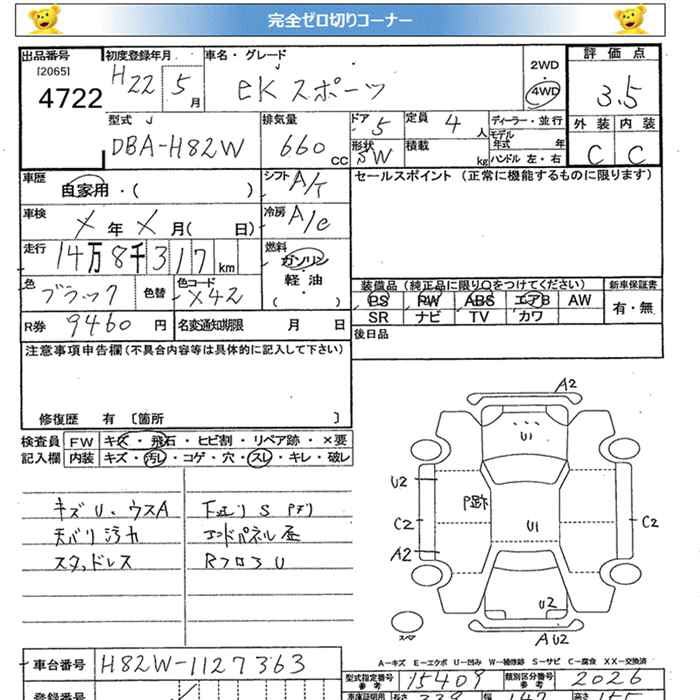 完全ゼロ切りコーナー
出品番号 初度登録年月 車名・グレード 評価点
[2065]
4722 H22 5月 eKスポーツ 2WD 4WD 3.5
型式 排気量 ドア 5 定員 4人 ディーラー・並行 外装 内装
DBA-H82W 660cc 形状 5W 積載 kg モデル年式 年式 ハンドル 左・右 C C
車歴 自家用・( ) シフト A/T セールスポイント (正常に機能するものに限ります)
車検 X年X月( 日) 冷房 A/C
走行 14万8千317km 燃料 ガソリン
軽油
( ・ )
色 ブラック 色替 色コード X42
装備品 (純正品に限り○をつけてください) 新車保証書
PS PW ABS エアB AW 有・無
SR ナビ TV カワ
R券 9460円 名変通知期限 月 日
後日品
注意事項申告欄(不具合内容等は具体的に記入して下さい)
修復歴 有 〔箇所 〕
検査員 FW キズ・飛石・ヒビ割・リペア跡・×要
記入欄 内装 キズ・汚レ・コゲ・穴・スレ・キレ・破レ
キズU・ウスA
天バリ汚れ
スタッドレス
下廻りS
エンドパネル
RフロアU
A2
U1
U2
P跡
C2
U1
C2
A2
U2
AU2
スペア
A-キズ E-エクボ U-凹み W-補修跡 S-サビ C-腐食 XX-交換済
車台番号 H82W-1127363
型式指定番号 参考 15409 類別区分番号 参考 2026
登録番号
車庫証明用 長さ 339 幅 147 高さ 155